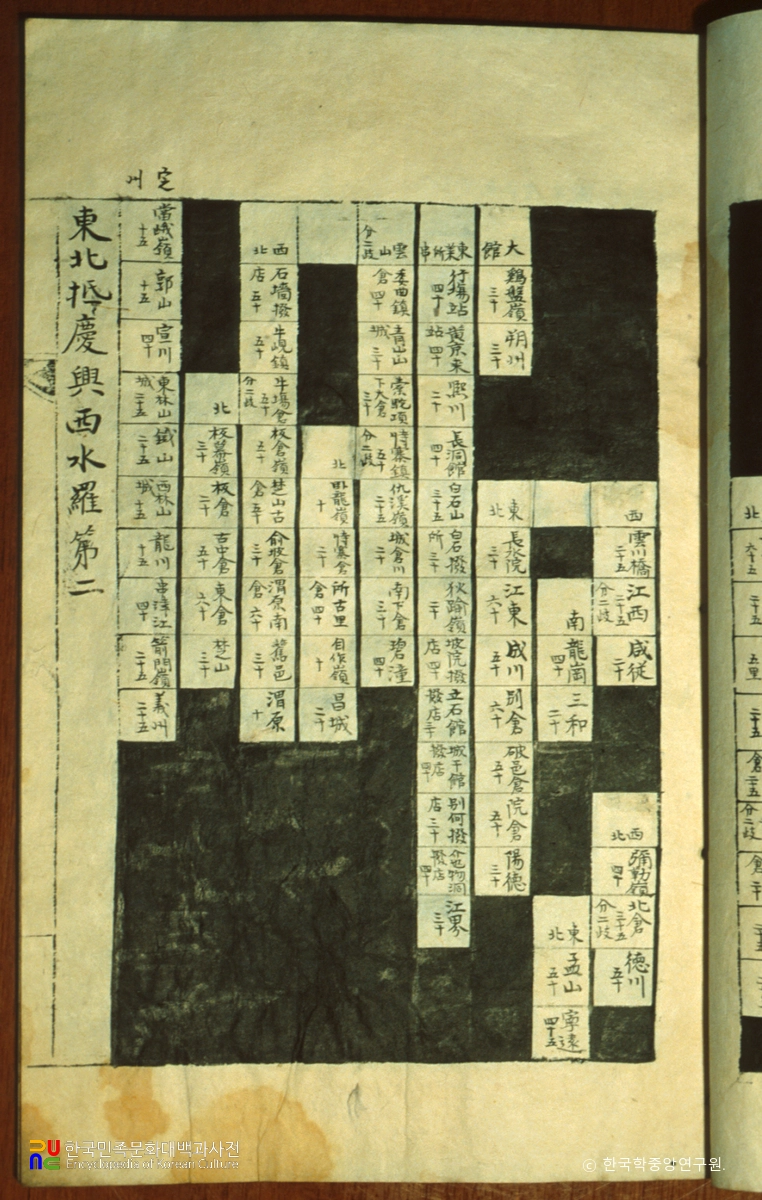 西
雲川橋 二十五
江西 二十五 分二歧
咸從 二十
西北
彌勒嶺 四十
北倉 三十五 分二歧
德川 五十
南
龍崗 四十
三和 二十
東北
孟山 五十
寧遠 四十五
大館
鷄盤嶺 三十
朔州 三十
東北
長水院 三十
江東 六十
成川 五十
別倉 六十
破邑倉 五十
院倉 五十
陽德 三十
行場站 四十
熙川 二十
長洞館 四十
白石山 三十五
白石撥所 三十
狄踰嶺 二十
坡院撥店 四十
立石館撥店 三十
城干館撥店 四十
別何撥店 三十
江界 三十
雲山 分二歧
委曲鎭倉 四十
青山山城 三十
仇溪嶺 二十五
城倉川 二十
南下倉 三十
碧潼 四十
北
卧龍嶺 十
特寨倉 二十
所古里倉 四十
自作嶺 十
昌城 二十
西北
石墻撥店 五十
牛峴鎭 五十
牛場倉 五十 分二歧
板倉嶺 五十
楚山古倉 五十
俞坡倉 三十
渭原南倉 六十
舊邑 三十
渭原 十
北
板幕嶺 三十
板倉 二十
古中倉 五十
東倉 六十
楚山 三十
定州
當峨嶺 十五
郭山 十五
宣川 四十
東林山城 二十五
鐵山 二十五
西林山城 十五
龍川 十五
串津江 四十
箭門嶺 二十五
義州 二十五
東北抵慶興西水羅第二
北
한국민족문화대백과사전
Encyclopedia of Korean Culture
© 한국학중앙연구원